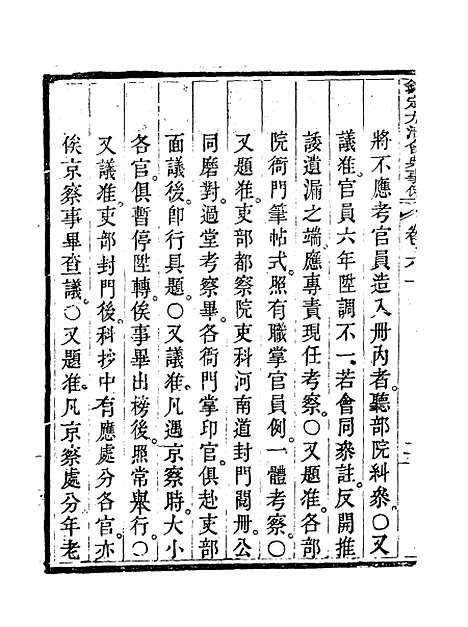 欽定大清會典事例 卷六十一
將不應考官員造入冊內者聽部院糾參○又
議准官員六年陞調不一若會同參註反開推
諉遺漏之端應專責現任考察○又題准各部
院衙門筆帖式照有職掌官員例一體考察○
又題准吏部都察院吏科河南道封門閱冊公
同磨對過堂考察畢各衙門掌印官俱赴吏部
面議後卽行具題○又議准凡遇京察時大小
各官俱暫停陞轉俟事畢出榜後照常舉行○
又議准吏部封門後科抄中有應處分各官亦
俟京察事畢查議○又題准凡京察處分年老